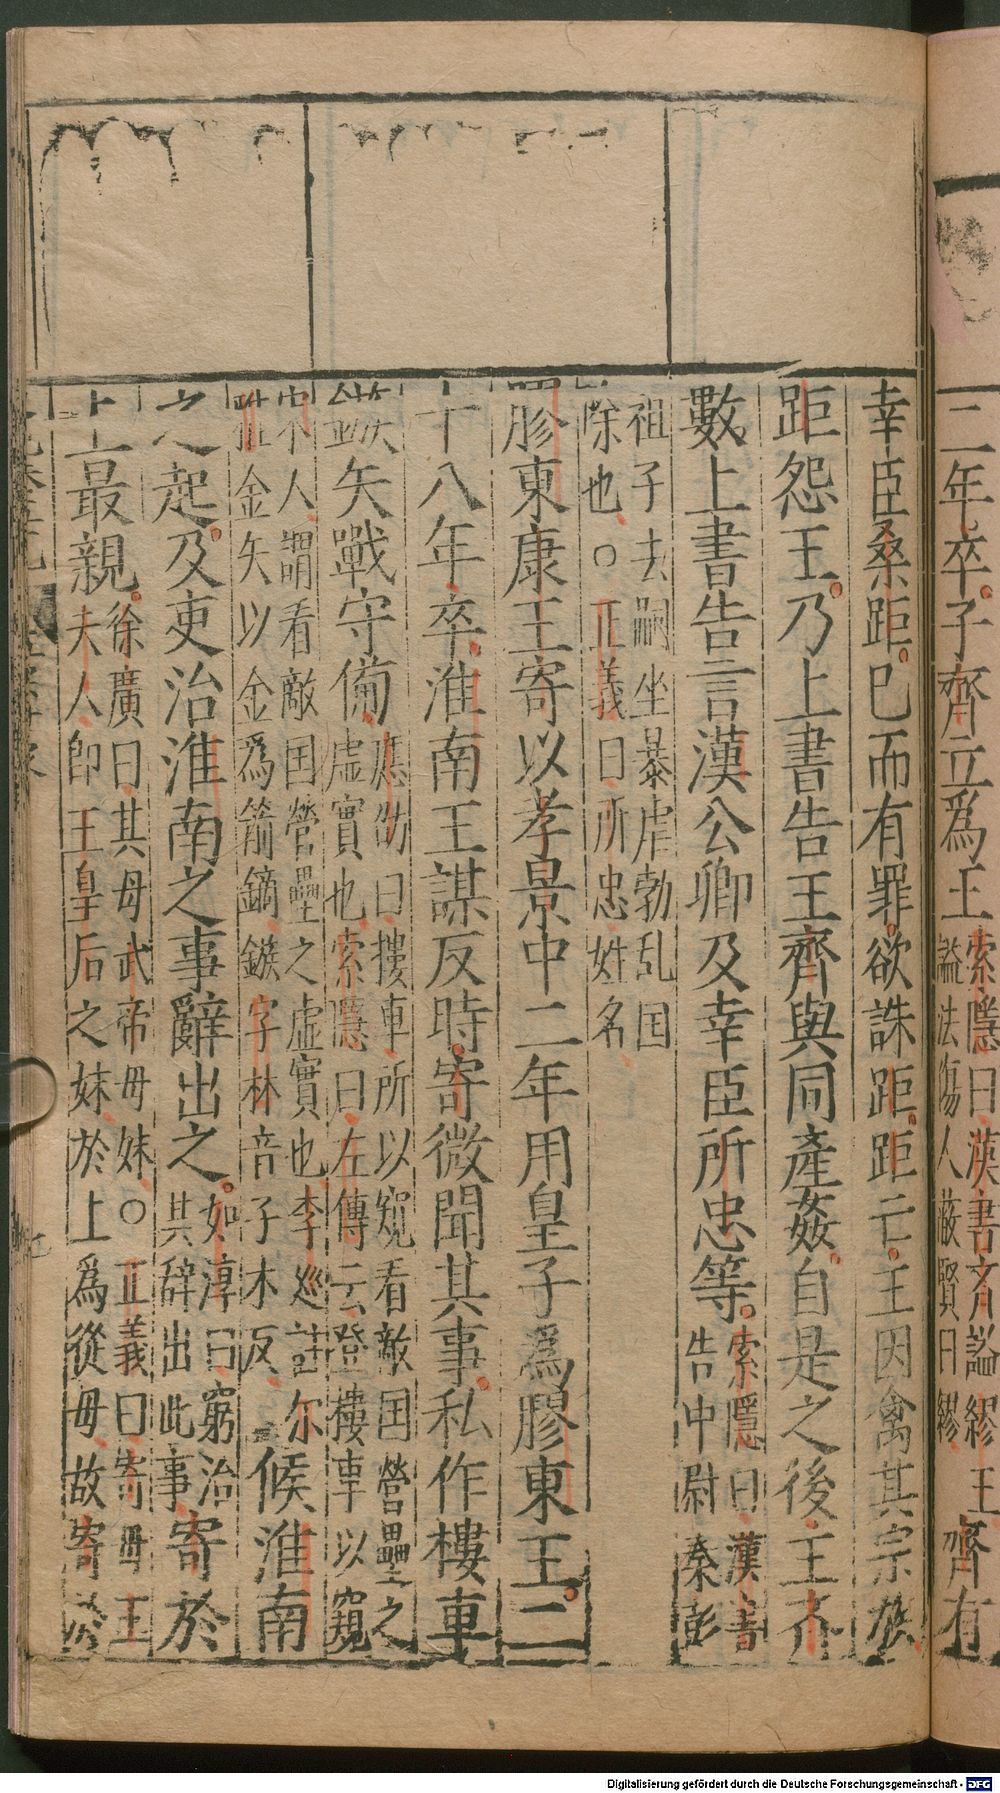 二年卒子齊立爲王索隱曰漢書齊謚繆王
謚法傷人蔽賢曰繆齊有
幸臣桑距已而有罪欲誅距距亡王因禽其宗族
距怨王乃上書告王齊與同產姦自是之後王齐
數上書告言漢公卿及幸臣所忠等索隱曰漢書
告中尉秦彭
祖子去嗣坐暴虐勃乱国
除也〇正義曰所忠姓名
膠東康王寄以孝景中二年用皇子爲膠東王二
十八年卒淮南王謀反時寄微聞其事私作樓車
鏃矢戰守備應劭曰摟車所以窺看敵国營壘之
虛實也索隱曰左傳云登樓車以窺
宋人謂看敵国營壘之虛實也李巡註尔
雅金矢以金爲箭鏑鏃字林音子木反候淮南
之起及吏治淮南之事辭出之如淳曰窮治
其辞出此事寄於
上最親徐廣曰其母武帝母妹〇正義曰寄母王
夫人即王皇后之妹於上爲從母故寄於
Digitalisierung gefördert durch die Deutsche Forschungsgemeinschaft - DFG